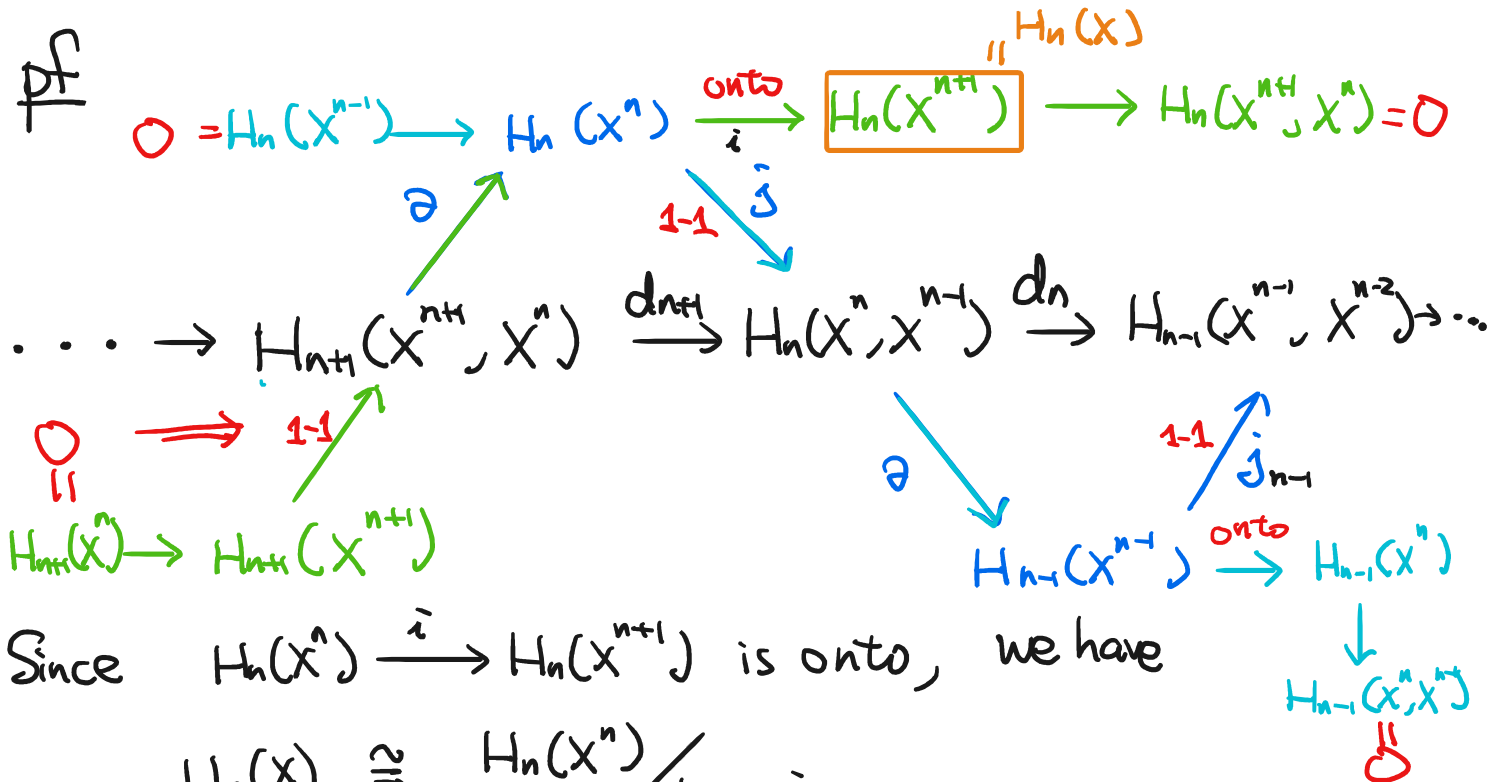 pf
= Hn(X)
0 = Hn(X^{n-1}) → Hn(X^n) onto → i Hn(X^{n+1}) → Hn(X^{n+1}, X^n) = 0
∂ 1-1 j
··· → Hn+1(X^{n+1}, X^n) dn+1 → Hn(X^n, X^{n-1}) dn → Hn-1(X^{n-1}, X^{n-2}) → ···
0 ⇒ 1-1 ∂ 1-1 jn-1
=
Hn+1(X^n) → Hn+1(X^{n+1}) Hn-1(X^{n-1}) onto → Hn-1(X^n)
Since Hn(X^n) i → Hn(X^{n+1}) is onto, we have ↓
Hn-1(X^n, X^{n-1})
= 0
Hn(X) ≅ Hn(X^n) /